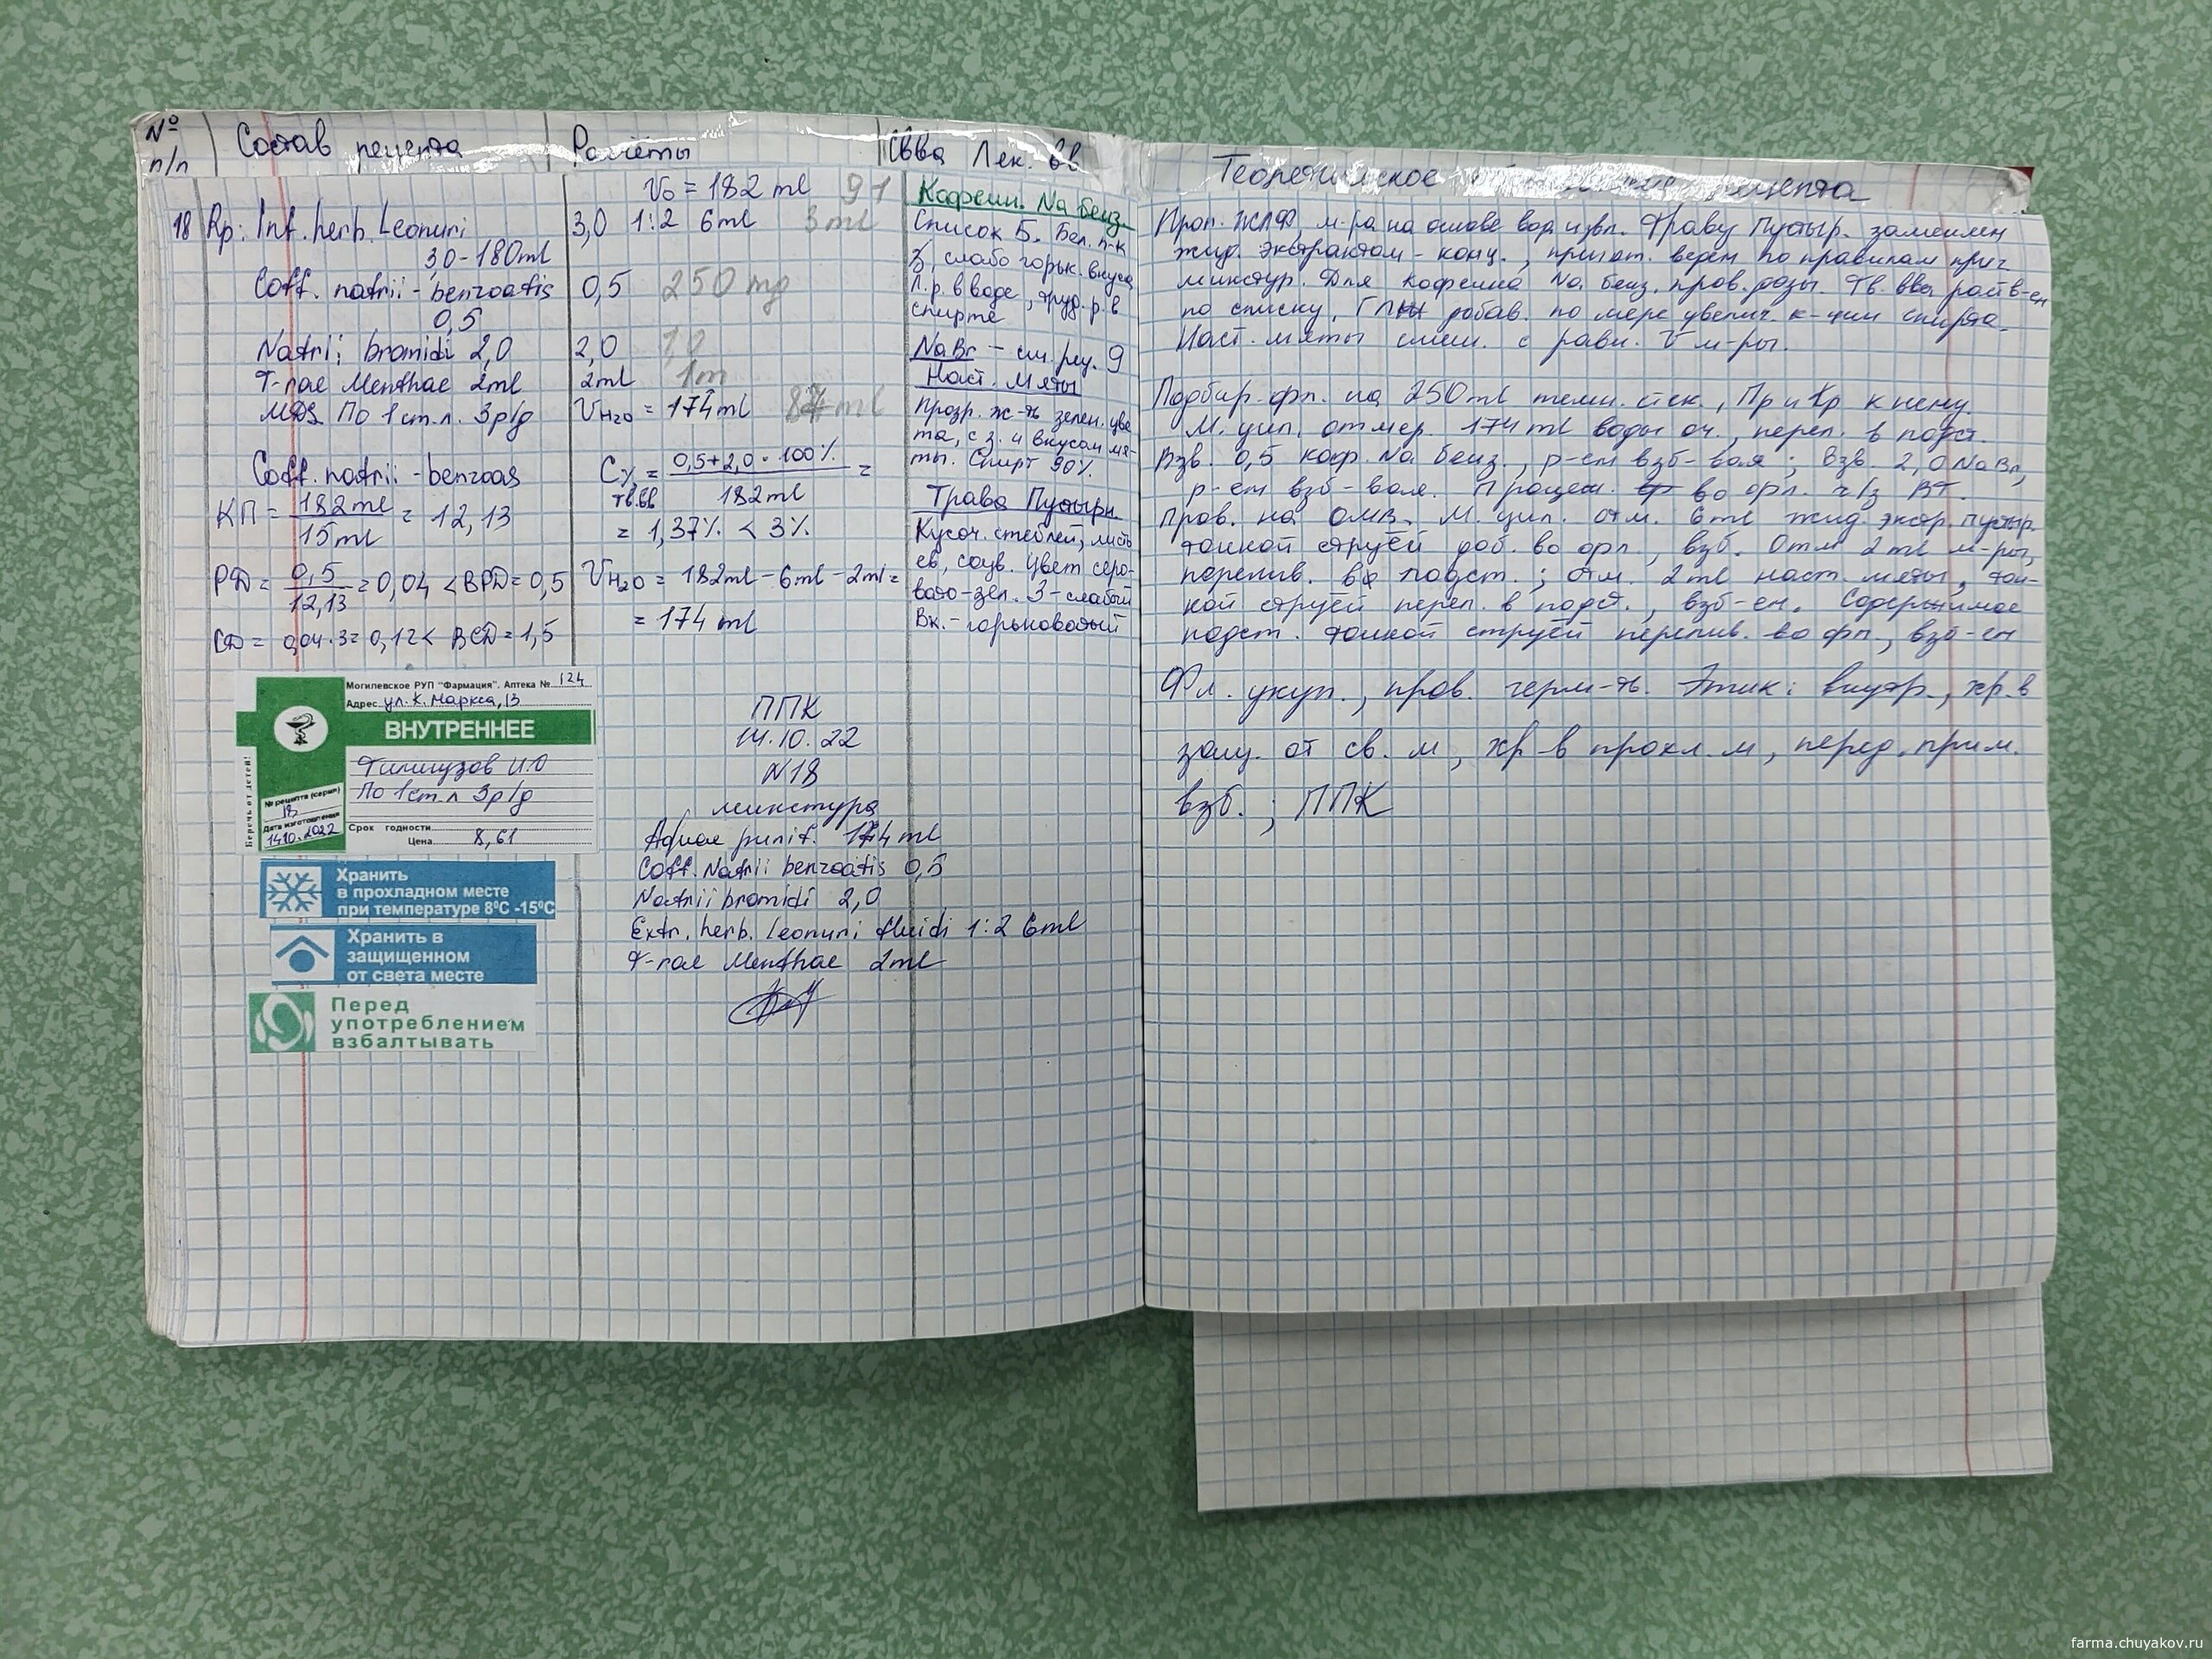 № п/п
Состав рецепта
Расчёты
Св-ва Лек. вв
Теоретическое рецепта
18 Rp: Inf. herb. Leonuri
3,0-180ml
Coff. natrii-benzoatis
0,5
Natrii bromidi 2,0
T-rae Menthae 2ml
МДS По 1 ст.л. 3р/д
Coff. natrii-benzoas
КП = 182ml / 15ml = 12,13
РД = 0,5 / 12,13 = 0,04 < ВРД = 0,5
СД = 0,04·3 = 0,12 < ВСД = 1,5
V₀ = 182 ml 91
3,0 1:2 6ml 3ml
0,5 250 mg
2,0 1,0
2ml 1m
V H₂O = 174 ml 87 ml
C% тв.вв = 0,5+2,0 · 100% / 182 ml =
= 1,37% < 3%
V H₂O = 182ml - 6ml - 2ml =
= 174 ml
Кофеин. Na бенз.
Список Б. Бел. п-к
, слабо горьк. вкуса
Л. р. в воде, труд. р. в
спирте
NaBr - см. рец. 9
Наст. Мяты
Прозр. ж-ть зелен. цве
та, с з. и вкусом мя-
ты. Спирт 90%.
Трава Пустырн.
Кусоч. стеблей, листь
ев, соцв. Цвет серо-
вато-зел. З-слабый
Вк. - горьковатый
Могилевское РУП "Фармация". Аптека № 124
Адрес ул. К. Маркса, 13
ВНУТРЕННЕЕ
По 1 ст.л 3р/д
Беречь от детей!
№ рецепта (серия)
18
Дата изготовления
14.10.2022
Срок годности
Цена 8,61
Хранить
в прохладном месте
при температуре 8⁰С -15⁰С
Хранить в
защищенном
от света месте
Перед
употреблением
взбалтывать
ППК
14.10.22
N18
микстура
Aquae purif. 174 ml
Coff. Natrii benzoatis 0,5
Natrii bromidi 2,0
Extr. herb. Leonuri fluidi 1:2 6ml
T-rae Menthae 2ml
Проп. ЖЛФ, м-ра на основе вод. извл. Траву Пустыр. заменяем
жид. экстрактом - конц., пригот. ведем по правилам приг.
микстур. Для кофеина Na бенз. пров. дозы. Тв. вва раств-ем
по списку, добав. по мере увелич. к-ции спирта.
Наст. мяты смеш. с равн. V м-ры.
Подбир. фл. на 250 ml темн. стек., Пр и Кр к нему.
М. цил. отмер. 174 ml воды оч., перел. в подст.
Взв. 0,5 коф. Na бенз., р-ем взб-вая; Взв. 2,0 NaBr,
р-ем взб-вая. Процеж. во фл. ч/з ВТ.
Пров. на ОМВ. М. цил. отм. 6ml жид. экстр. пустыр.
тонкой струёй доб. во фл., взб. Отм 2ml м-ры,
перелив. в подст.; отм. 2ml наст. мяты, тон-
кой струёй перел. в подст., взб-ем. Содержимое
подст. тонкой струёй перелив. во фл., взб-ем
Фл. укуп., пров. герм-ть. Этик: внутр., хр. в
защ. от св. м, хр в прохл. м, перед. прим.
взб.; ППК
farma.chuyakov.ru